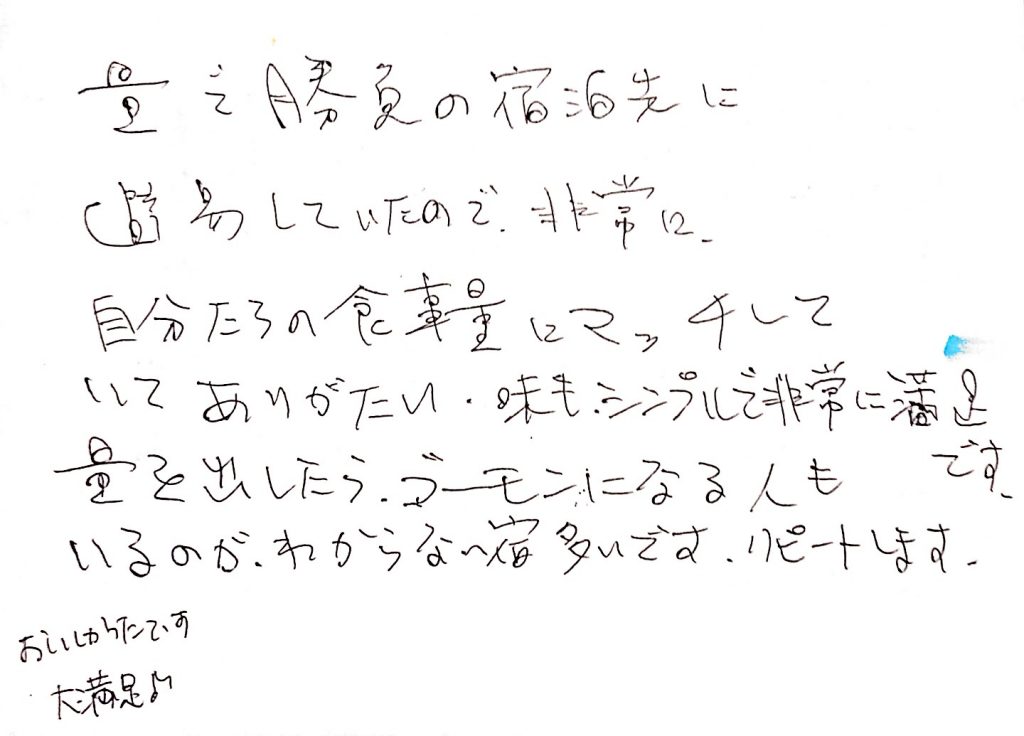 量で勝負の宿泊先に
辟易していたので、非常に、
自分たちの食事量にマッチして
いてありがたい・味も、シンプルで非常に満足
です。
量を出したら、ゴーモンになる人も
いるのが、わからない宿多いです、リピートします。
おいしかったです
大満足♪